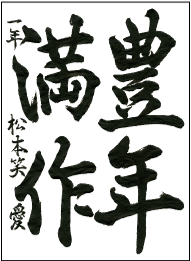 豊年
満作
一年 松本笑愛